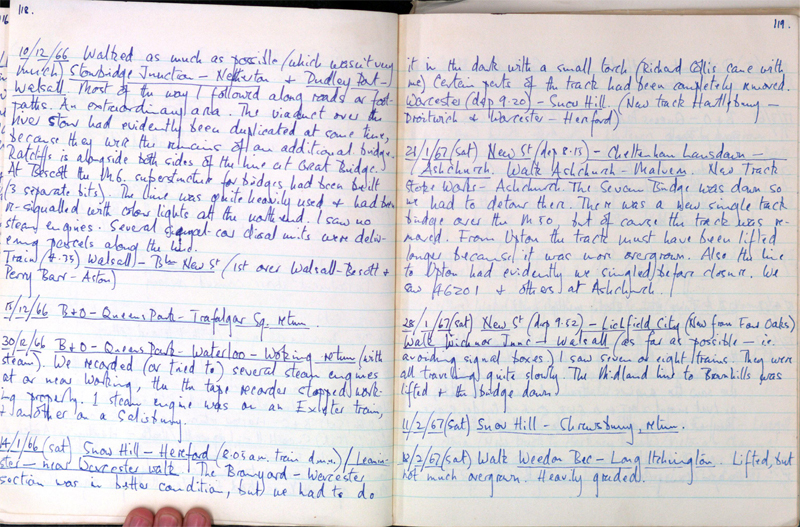 118.
10/12/66 Walked as much as possible (which wasn't very
much) Stourbridge Junction – Netherton & Dudley Port –
Walsall. Most of the way I followed along roads or foot-
paths. An extraordinary area. The viaduct over the
river Stour had evidently been duplicated at some time,
because they were the remains of an additional bridge.
Ratcliffs is alongside both sides of the line at Great Bridge.
At Bescott the M6. superstructure for bridges had been built
(3 separate bits). The line was quite heavily used & had been
re-signalled with colour lights at the north end. I saw no
steam engines. Several single-car diesel units were deliv-
ering parcels along the line.
Train (4.35) Walsall – B'ham New St (1st over Walsall – Bescott &
Perry Barr – Aston)
15/12/66 B+O – Queens Park – Trafalgar Sq. return.
30/12/66 B+O – Queens Park – Waterloo – Woking return (with
steam). We recorded (or tried to) several steam engines
at or near Woking, then the tape recorder stopped work-
ing properly. 1 steam engine was on an Exeter train,
& another on a Salisbury.
14/1/66 (sat) Snow Hill – Hereford (8.05 a.m. train d.m.u.) / Leomin-
ster – near Worcester walk. The Bromyard – Worcester
section was in better condition, but we had to do
119.
it in the dark with a small torch (Richard Collis came with
me) Certain parts of the track had been completely removed.
Worcester (dep 9.20) – Snow Hill. (New track Hartlebury –
Droitwich & Worcester – Hereford)
21/1/67 (sat) New St (dep 8.15) – Cheltenham Lansdown –
Ashchurch. Walk Ashchurch – Malvern. New Track
Stoke Works – Ashchurch. The Severn Bridge was down so
we had to detour there. There was a new single track
bridge over the M50, but of course the track was re-
moved. From Upton the track must have been lifted
longer because it was more overgrown. Also the line
to Upton had evidently be singled before closure. We
saw 46201 & others at Ashchurch.
28/1/67 (sat) New St (dep 9.52) – Lichfield City (New from Four Oaks)
Walk Wichnor Junc – Walsall (as far as possible – ie.
avoiding signal boxes) I saw seven or eight trains. They were
all travelling quite slowly. The Midland line to Brownhills was
lifted & the bridge down
11/2/67 (sat) Snow Hill – Shrewsbury, return.
18/2/67 (sat) Walk Weedon Bec – Long Itchington. Lifted, but
not much overgrown. Heavily graded.